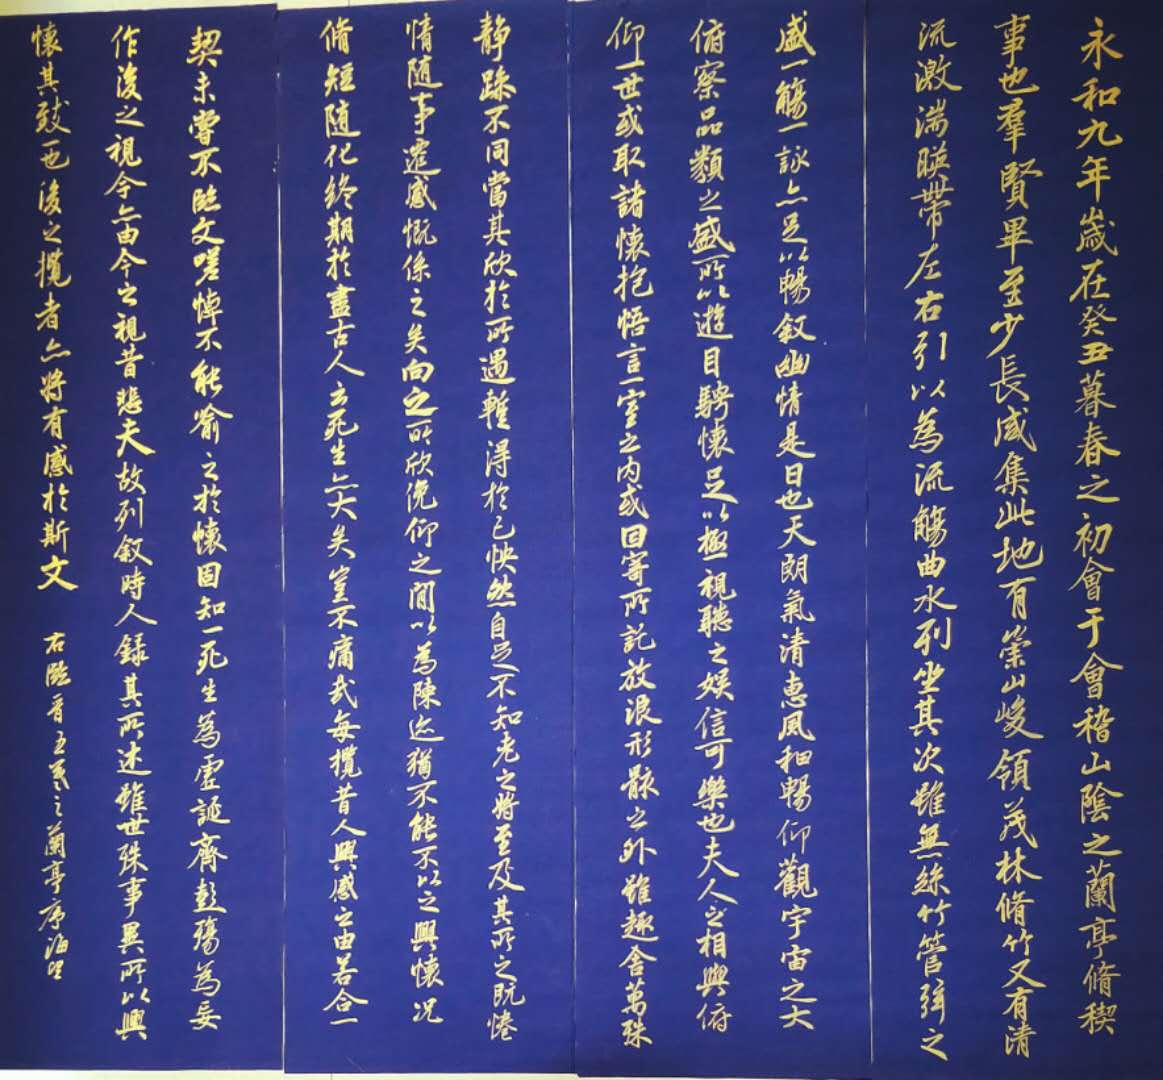 永和九年歲在癸丑暮春之初會于會稽山陰之蘭亭脩稧
事也羣賢畢至少長咸集此地有崇山峻領茂林脩竹又有清
流激湍暎帶左右引以為流觴曲水列坐其次雖無絲竹管弦之
盛一觴一詠亦足以暢叙幽情是日也天朗氣清惠風和暢仰觀宇宙之大
俯察品類之盛所以遊目騁懷足以極視聽之娛信可樂也夫人之相與俯
仰一世或取諸懷抱悟言一室之內或因寄所託放浪形骸之外雖趣舍萬殊
静躁不同當其欣於所遇暫得於己怏然自足不知老之將至及其所之既惓
情隨事遷感慨係之矣向之所欣俛仰之間以為陳迹猶不能不以之興懷況
脩短隨化終期於盡古人云死生亦大矣豈不痛哉每攬昔人興感之由若合一
契未嘗不臨文嗟悼不能喻之於懷固知一死生為虛誕齊彭殤為妄
作後之視今亦由今之視昔悲夫故列叙時人錄其所述雖世殊事異所以興
懷其致一也後之攬者亦將有感於斯文 右臨晉王羲之蘭亭序海